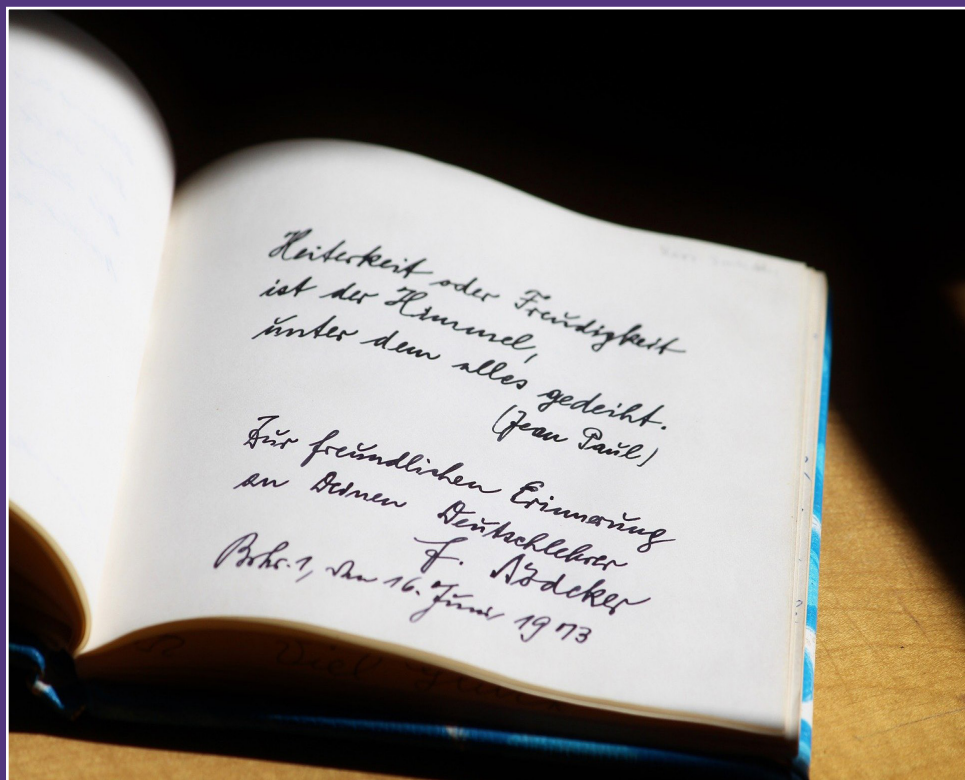 Heiterkeit oder Freudigkeit
ist der Himmel,
unter dem alles gedeiht.
(Jean Paul)
Zur freundlichen Erinnerung
an Deinen Deutschlehrer
F. Bödeker
Brhv. 1, den 16. Juni 1973
Viel